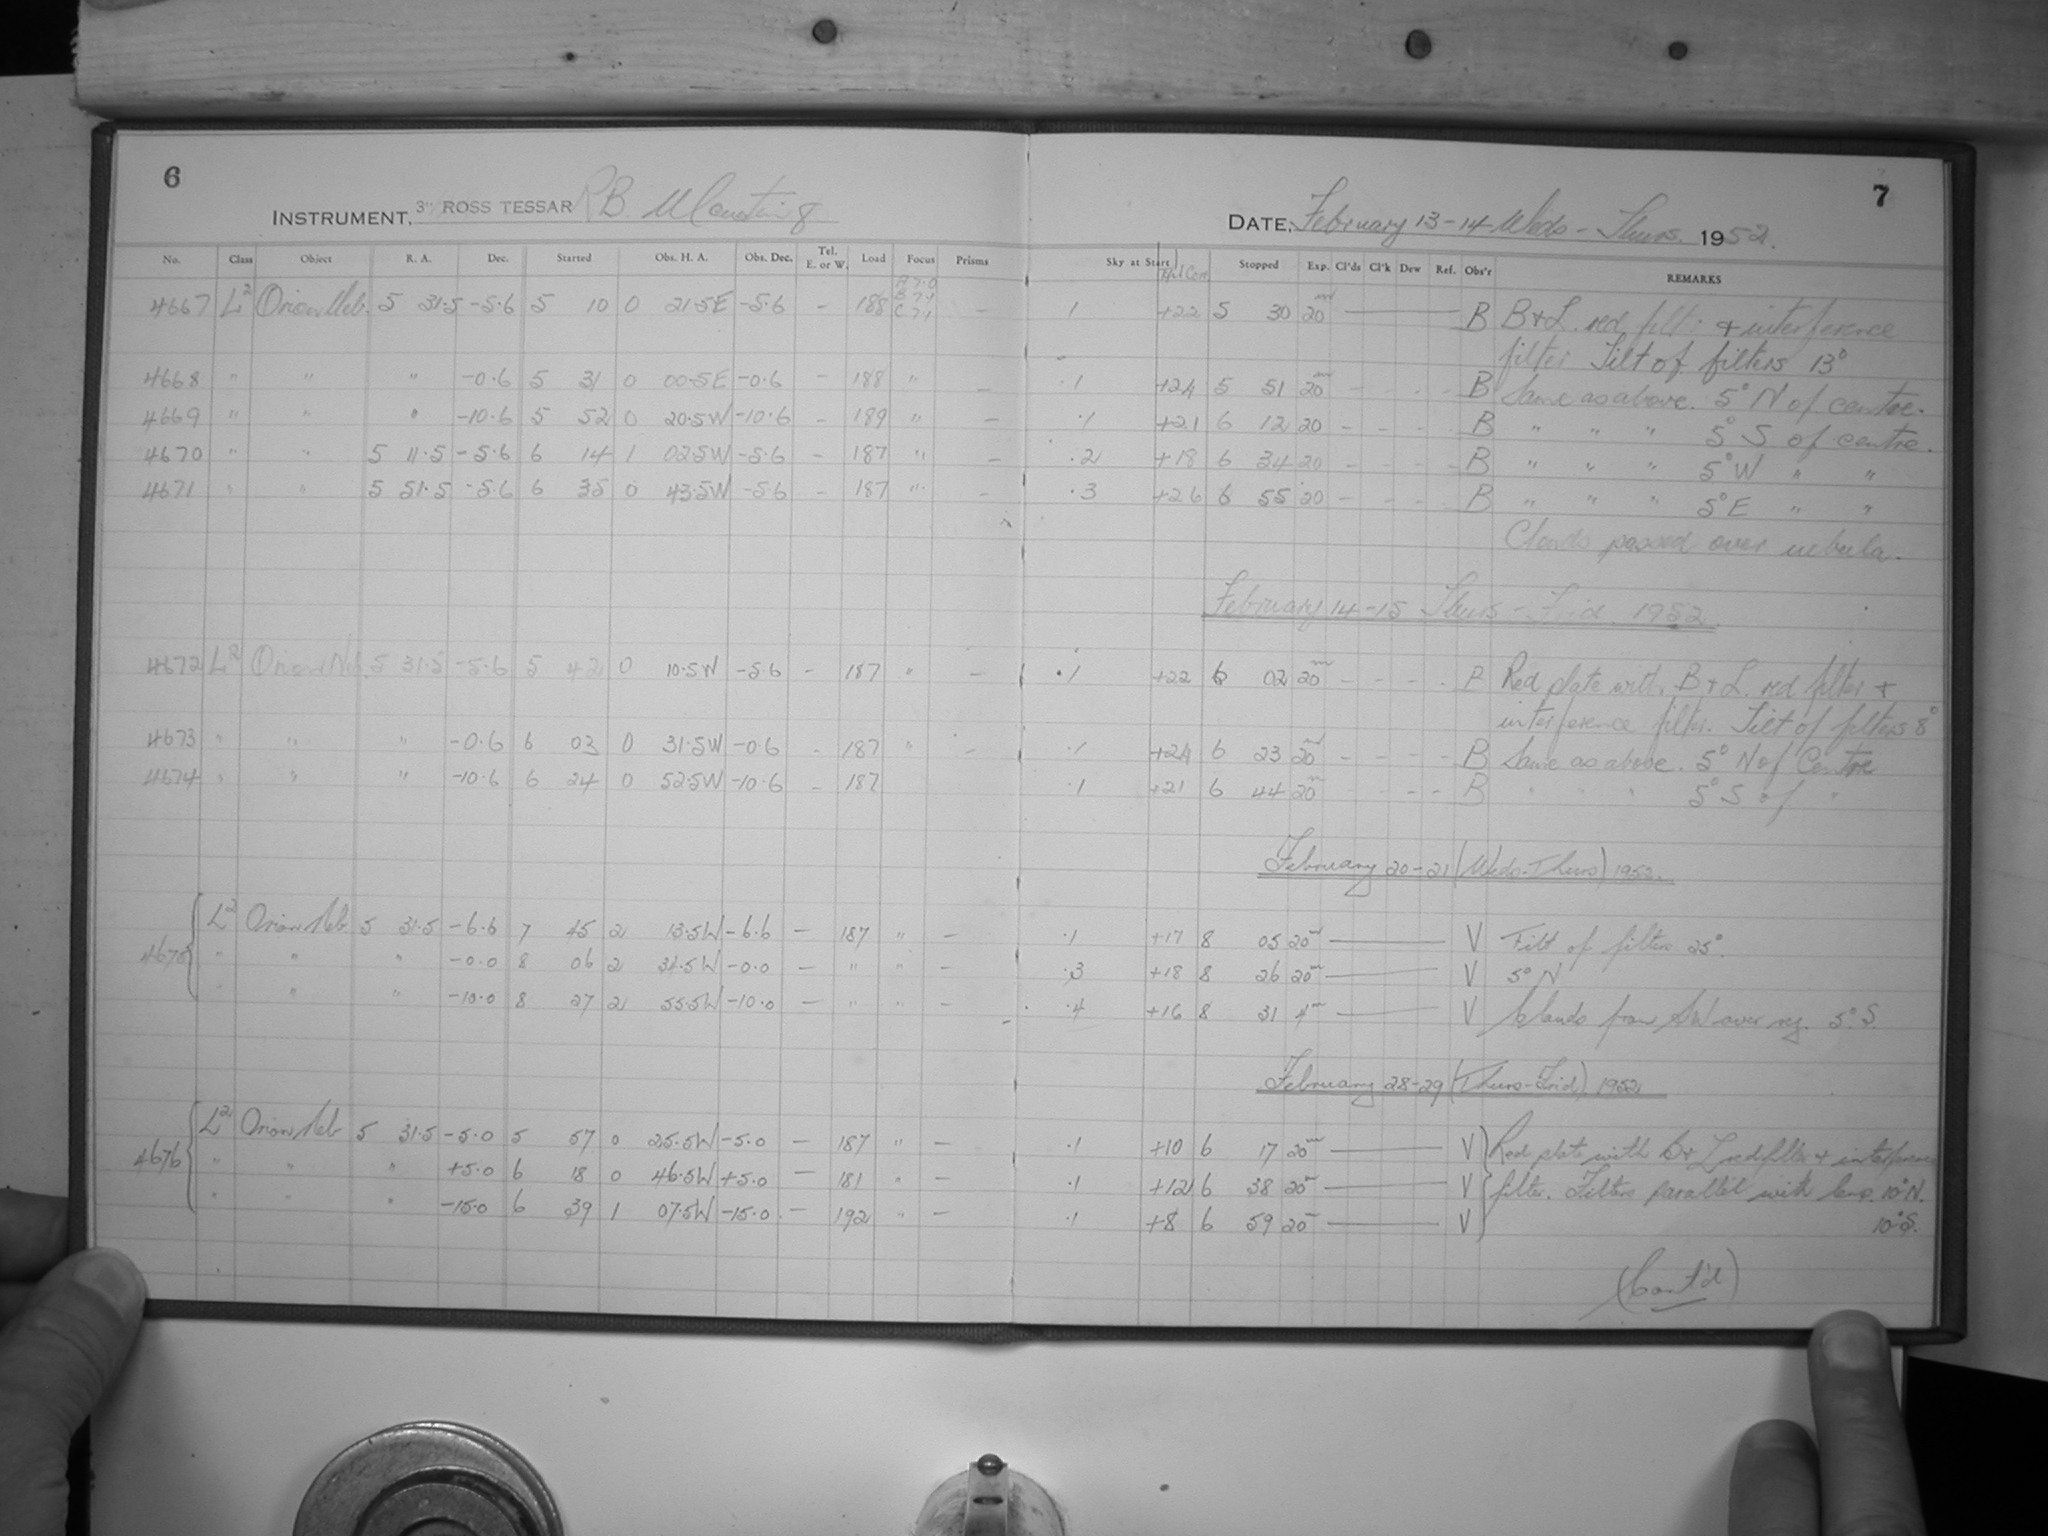 6
INSTRUMENT, 3" ROSS TESSAR RB Mounting
No. Class Object R. A. Dec. Started Obs. H. A. Obs. Dec. Tel. E. or W. Load Focus Prisms
4667 L² Orion Neb. 5 31.5 -5.6 5 10 0 21.5E -5.6 - 188 A 7.0 B 7.1 C 7.1 -
4668 " " " -0.6 5 31 0 00.5E -0.6 - 188 " -
4669 " " " -10.6 5 52 0 20.5W -10.6 - 189 " -
4670 " " 5 11.5 -5.6 6 14 1 02.5W -5.6 - 187 " -
4671 " " 5 51.5 -5.6 6 35 0 43.5W -5.6 - 187 " -
4672 L² Orion Neb. 5 31.5 -5.6 5 42 0 10.5W -5.6 - 187 " -
4673 " " " -0.6 6 03 0 31.5W -0.6 - 187 " -
4674 " " " -10.6 6 24 0 52.5W -10.6 - 187
4675 L² Orion Neb 5 31.5 -6.6 7 45 2 13.5W -6.6 - 187 " -
" " " -0.0 8 06 2 34.5W -0.0 - " " -
" " " -10.0 8 27 2 55.5W -10.0 - " " -
4676 L² Orion Neb 5 31.5 -5.0 5 57 0 25.5W -5.0 - 187 " -
" " " +5.0 6 18 0 46.5W +5.0 - 181 " -
" " " -15.0 6 39 1 07.5W -15.0 - 192 " -
7
DATE, February 13-14 Weds - Thurs. 1952.
Sky at Start Stopped Exp. Cl'ds Cl'k Dew Ref. Obs'r REMARKS
.1 +22 5 30 20ᵐ B B+L. red filt. + interference
filter Tilt of filters 13°
.1 +24 5 51 20ᵐ - - - - B Same as above. 5° N of centre.
.1 +21 6 12 20 - - - - B " " " 5° S of centre.
.2 +18 6 34 20 - - - - B " " " 5° W " "
.3 +26 6 55 20 - - - - B " " " 5° E " "
Clouds passed over nebula.
February 14-15 Thurs - Frid. 1952.
.1 +22 6 02 20ᵐ - - - - B Red plate with B+L. red filter +
interference filter. Tilt of filters 8°
.1 +24 6 23 20ᵐ - - - - B Same as above. 5° N of Centre
.1 +21 6 44 20ᵐ - - - - B " " " 5° S of "
February 20-21 (Weds-Thurs) 1952.
.1 +17 8 05 20ᵐ V Tilt of filters 25°.
.3 +18 8 26 20ᵐ V 5° N
.4 +16 8 31 4ᵐ V Clouds from SW over reg. 5° S
February 28-29 (Thurs-Frid) 1952
.1 +10 6 17 20ᵐ V Red plate with B+L red filter + interference
.1 +12 6 38 20ᵐ V filter. Filters parallel with lens. 10° N.
.1 +8 6 59 20ᵐ V 10° S.
(Cont'd)